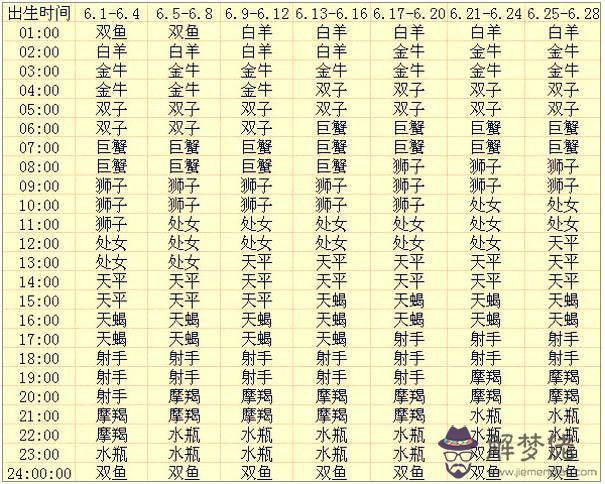 出生时间 6.1-6.4 6.5-6.8 6.9-6.12 6.13-6.16 6.17-6.20 6.21-6.24 6.25-6.28
01:00 双鱼 双鱼 白羊 白羊 白羊 白羊 白羊
02:00 白羊 白羊 白羊 白羊 金牛 金牛 金牛
03:00 金牛 金牛 金牛 金牛 金牛 金牛 金牛
04:00 金牛 金牛 金牛 双子 双子 双子 双子
05:00 双子 双子 双子 双子 双子 双子 双子
06:00 双子 双子 双子 巨蟹 巨蟹 巨蟹 巨蟹
07:00 巨蟹 巨蟹 巨蟹 巨蟹 巨蟹 巨蟹 巨蟹
08:00 巨蟹 巨蟹 巨蟹 巨蟹 狮子 狮子 狮子
09:00 狮子 狮子 狮子 狮子 狮子 狮子 狮子
10:00 狮子 狮子 狮子 狮子 狮子 处女 处女
11:00 狮子 处女 处女 处女 处女 处女 处女
12:00 处女 处女 处女 处女 处女 处女 天平
13:00 处女 处女 天平 天平 天平 天平 天平
14:00 天平 天平 天平 天平 天平 天平 天平
15:00 天平 天平 天平 天蝎 天蝎 天蝎 天蝎
16:00 天蝎 天蝎 天蝎 天蝎 天蝎 天蝎 天蝎
17:00 天蝎 天蝎 天蝎 天蝎 射手 射手 射手
18:00 射手 射手 射手 射手 射手 射手 射手
19:00 射手 射手 射手 射手 射手 摩羯 摩羯
20:00 射手 摩羯 摩羯 摩羯 摩羯 摩羯 摩羯
21:00 摩羯 摩羯 摩羯 摩羯 摩羯 水瓶 水瓶
22:00 摩羯 水瓶 水瓶 水瓶 水瓶 水瓶 水瓶
23:00 水瓶 水瓶 水瓶 水瓶 水瓶 双鱼 双鱼
24:00:00 双鱼 双鱼 双鱼 双鱼 双鱼 双鱼 双鱼
解梦佬